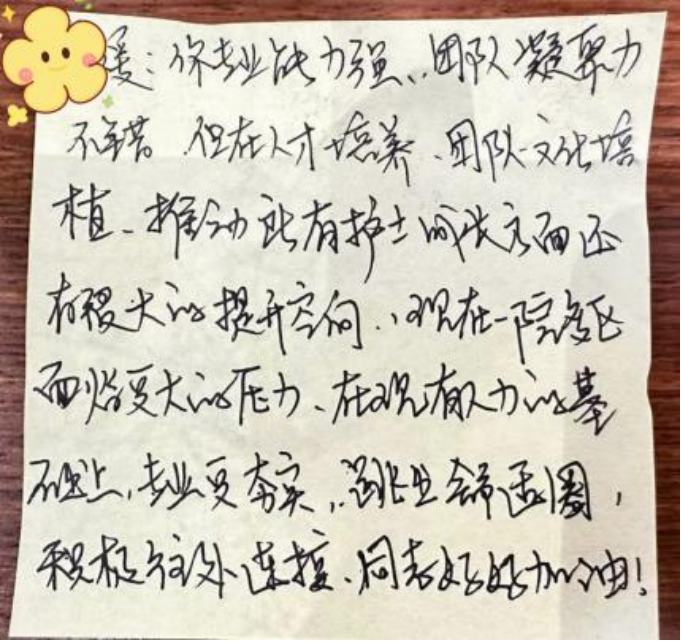 媛：你专业能力强，团队凝聚力
不错，但在人才培养、团队文化培
植、推动所有护士成长方面还
有很大的提升空间，现在一院多区
面临更大的压力、在现有人力的基
础上，专业要夯实，跳出舒适圈，
积极往外连接、同志好好加油！